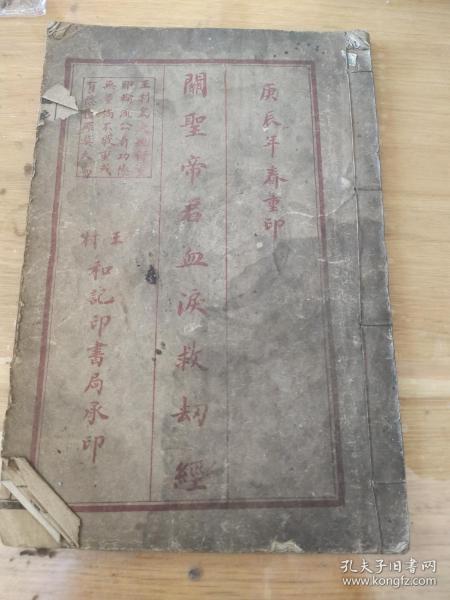 庚辰年春重印
關聖帝君血淚救劫經
王村
和記印書局承印
孔夫子旧书网
www.kongfz.com